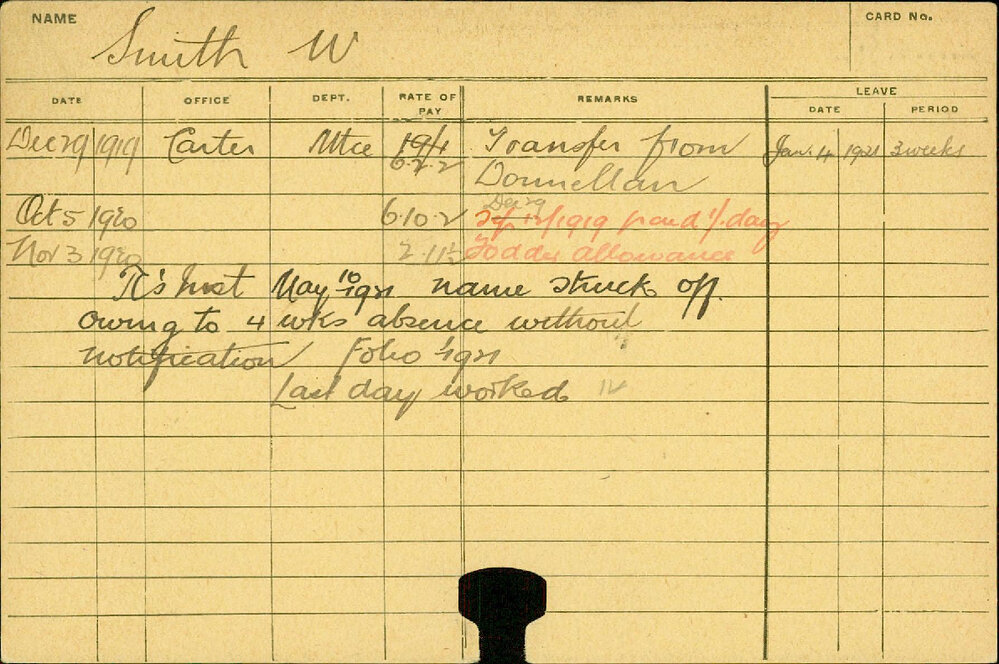 NAME Smith W CARD No.
DATE OFFICE DEPT. RATE OF PAY REMARKS LEAVE
DATE PERIOD
Dec 29 1919 Carter Mtce 19/4 Transfer from Jan. 4 1921 3 weeks
6.2.2 Donnellan
Dec 29
Oct 5 1920 6.10.2 1919 paid 1/. day
Nov 3 1920 2.11½ Fodder allowance
May 10 1921 name struck off.
owing to 4 wks absence without
notification Folio 1921
Last day worked